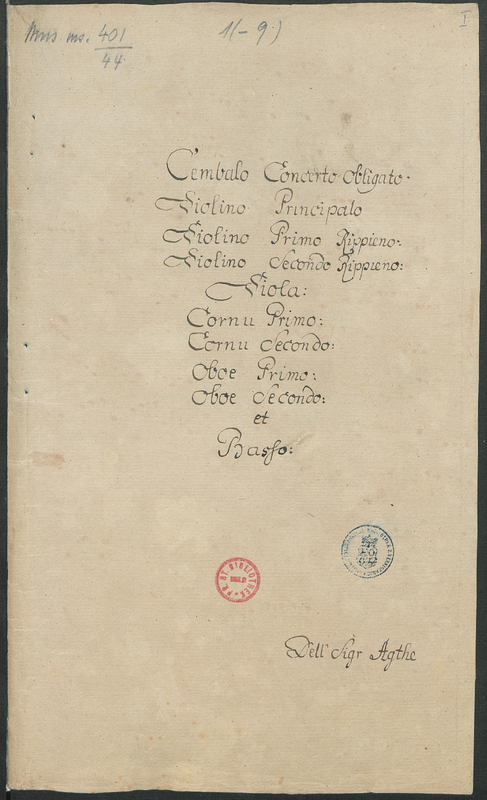 I
Mus ms. 401
44
1(-9.)
Cembalo Concerto Obligato.
Violino Principalo
Violino Primo Rippieno:
Violino Secondo Rippieno:
Viola:
Cornu Primo:
Cornu Secondo:
Oboe Primo:
Oboe Secondo:
et
Basso:
PR. ST. BIBLIOTHEK
BERLIN
Dell' Sigr Agthe